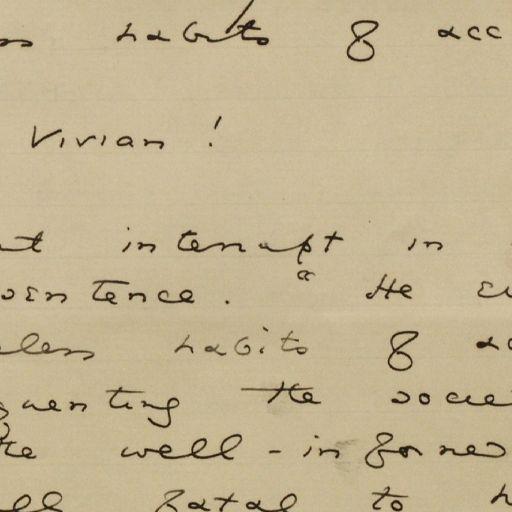 habits of acc
Vivian!
interrupt in
sentence. "He
habits of ac
quenting the socie
the well-informed
fatal to h